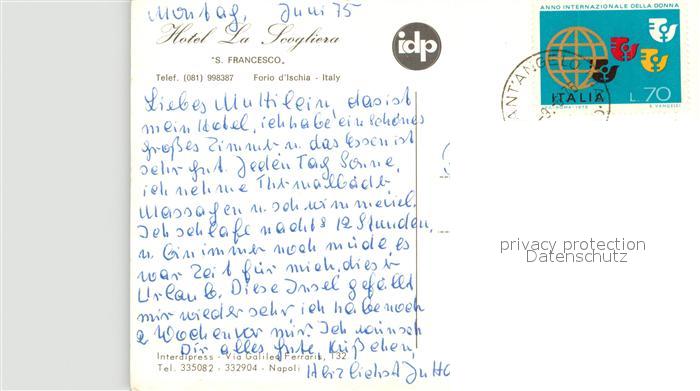 Montag, Juni 75
Hotel La Scogliera
"S. FRANCESCO"
Telef. (081) 998387 Forio d'Ischia - Italy
idp
ANNO INTERNAZIONALE DELLA DONNA
ITALIA L.70
SANT'ANGELO
Liebes Muttilein, das ist
mein Hotel, ich habe ein schönes
großes Zimmer u. das Essen ist
sehr gut. Jeden Tag Sonne,
ich nehme Thermalbäder
Massagen u. schwimme viel.
Ich schlafe nachts 12 Stunden,
u. bin immer noch müde, es
war Zeit für mich, dieser
Urlaub. Diese Insel gefällt
mir wieder sehr, ich habe noch
2 Wochen vor mir. Ich wünsch
Dir alles gute, Küßchen,
Herzlichst Jutta
Interdipress - Via Galileo Ferraris, 132
Tel. 335082 - 332904 - Napoli
privacy protection
Datenschutz